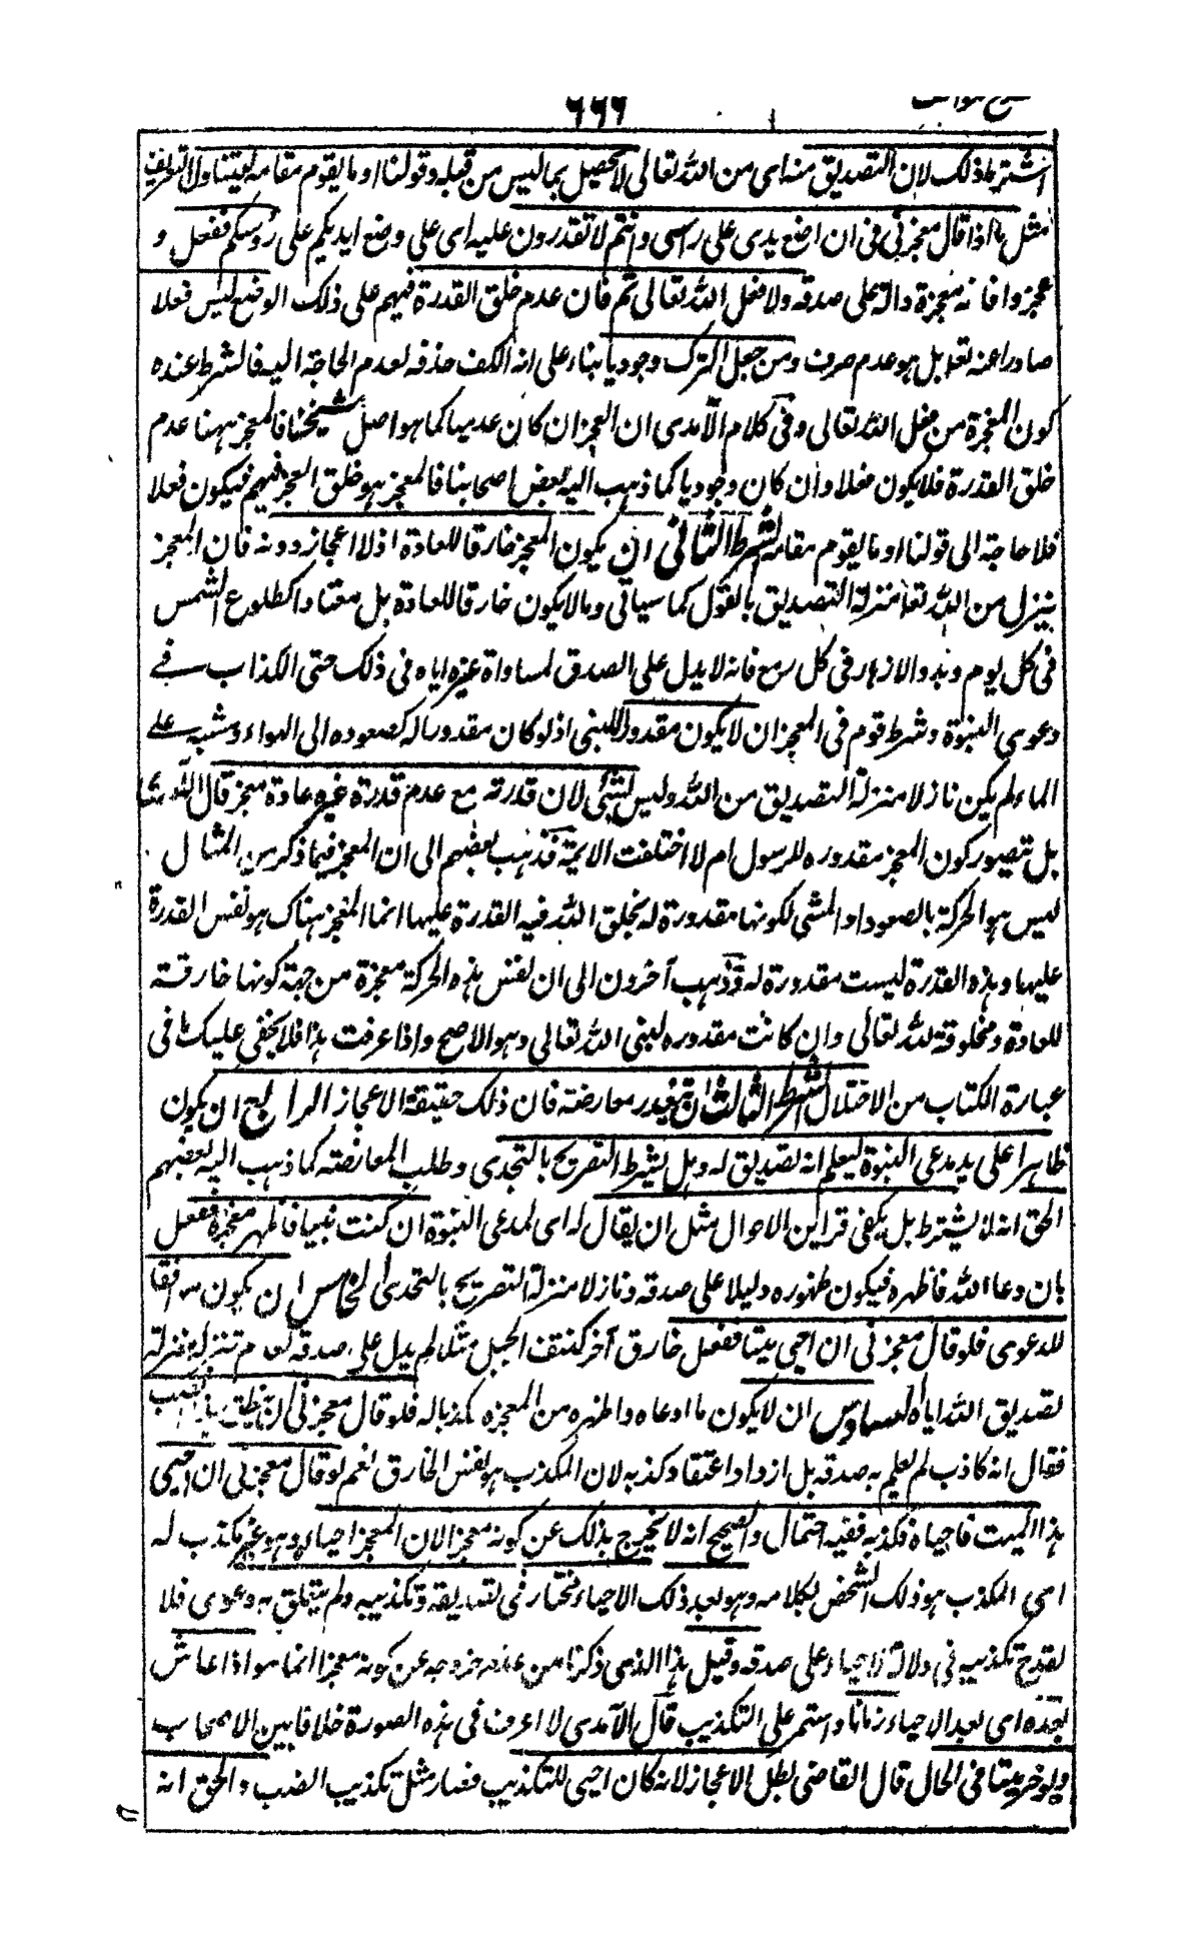 ٦٦٦
اشترط ذلك لان التصديق منه اى من الله تعالى لا يحصل بما ليس من قبله وقولنا او ما يقوم مقامه ليتناول التعريف
مثل ما اذا قال معجزتى فى ان اضع يدى على راسى وانتم لا تقدرون عليه اى على وضع ايديكم على رؤسكم ففعل و
عجزوا فانه معجزة دالة على صدقه ولا فعل لله تعالى ثم فان عدم خلق القدرة فيهم على ذلك الوضع ليس فعلا
صادرا عنه تعالى بل هو عدم صرف ومن جعل الترك وجوديا بناء على انه الكف حذفه لعدم الحاجة اليه فالشرط عنده
كون المعجزة من فعل الله تعالى وفى كلام الآمدى ان العجز ان كان عدميا كما هو اصل شيخنا فالمعجز ههنا عدم
خلق القدرة فلا يكون فعلا وان كان وجوديا كما ذهب اليه بعض اصحابنا فالمعجز هو خلق العجز فيهم فيكون فعلا
فلا حاجة الى قولنا او ما يقوم مقامه الشرط الثانى ان يكون المعجز خارقا للعادة اذ لا اعجاز دونه فان المعجز
ينزل من الله تعالى منزلة التصديق بالقول كما سياتى وما لا يكون خارقا للعادة بل معتادا كطلوع الشمس
فى كل يوم وبدو الازهار فى كل ربيع فانه لا يدل على الصدق لمساواة غيره اياه فى ذلك حتى الكذاب فے
دعوى النبوة وشرط قوم فى المعجز ان لا يكون مقدورا للنبى اذ لو كان مقدورا له كصعوده الى الهواء ومشيه على
الماء لم يكن نازلا منزلة التصديق من الله وليس بشئ لان قدرته مع عدم قدرة غيره عادة معجز قال الآمدى
بل يتصور كون المعجز مقدورة للرسول ام لا اختلفت الايمة فذهب بعضهم الى ان المعجز فيما ذكر من المثال
ليس هو الحركة بالصعود او المشى لكونها مقدورة له بخلق الله فيه القدرة عليها انما المعجز هناك هو نفس القدرة
عليها وهذه القدرة ليست مقدورة له وذهب آخرون الى ان نفس هذه الحركة معجزة من جهة كونها خارقة
للعادة ومخلوقة لله تعالى وان كانت مقدورة لنبى الله تعالى وهو الاصح واذا عرفت هذا فلا يخفى عليك ما فى
عبارة الكتاب من الاختلال الشرط الثالث ان يتعذر معارضته فان ذلك حقيقة الاعجاز الرابع ان يكون
ظاهرا على يد مدعى النبوة ليعلم انه تصديق له وهل يشترط التصريح بالتحدى وطلب المعارضة كما ذهب اليه بعضهم
الحق انه لا يشترط بل يكفى قراين الاحوال مثل ان يقال له اى لمدعى النبوة ان كنت نبيا فاظهر معجزة ففعل
بان دعا الله فاظهره فيكون ظهوره دليلا على صدقه ونازلا منزلة التصريح بالتحدى الخامس ان يكون موافقا
للدعوى فلو قال معجزتى ان احيى ميتا ففعل خارق آخر كنتف الجبل مثلا لم يدل على صدقه لعدم تنزله منزلة
تصديق الله اياه السادس ان لا يكون ما ادعاه واظهره من المعجزه مكذبا له فلو قال معجزتى ان ينطق هذا الضب
فقال انه كاذب لم يعلم به صدقه بل ازداد اعتقاد كذبه لان المكذب هو نفس الخارق نعم لو قال معجزتى ان احيى
هذا الميت فاحياه فكذبه ففيه احتمال والصحيح انه لا يخرج بذلك عن كونه معجزا لان المعجز احياءه وهو غير مكذب له
اى المكذب هو ذلك الشخص بكلامه وهو بعد ذلك الاحياء مختار فى تصديقه وتكذيبه ولم يتعلق به دعوى فلا
يقدح تكذيبه فى دلالة الاحياء على صدقه وقيل هذا الذى ذكرنا من عدم خروجه عن كونه معجزا انما هو اذا عاش
بعده اى بعد الاحياء زمانا واستمر على التكذيب قال الآمدى لا اعرف فى هذه الصورة خلافا بين الاصحاب
ولو خر ميتا فى الحال قال القاضى بطل الاعجاز لانه كان احيى للتكذيب فصار مثل تكذيب الضب والحق انه